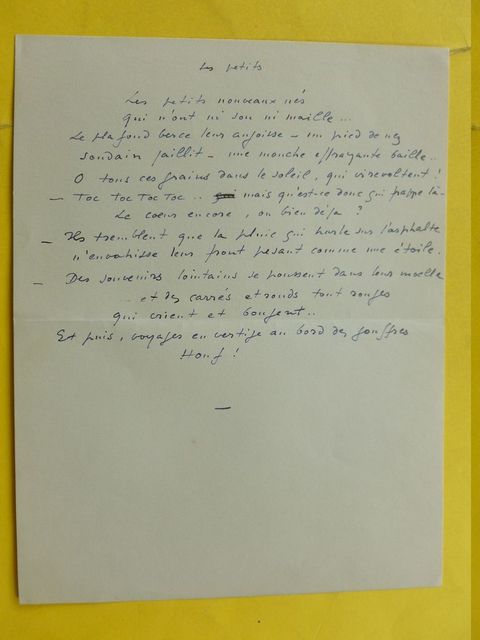 Les petits
Les petits nouveaux nés
qui n'ont ni son ni maille...
Le plafond berce leur angoisse - un pied de nez
soudain jaillit - une mouche effrayante baille..
O tous ces grains dans le soleil, qui virevoltent!
- Toc Toc Toc Toc .. mais qu'est-ce donc qui frappe là-
Le coeur encore, ou bien déja ?
- Ils tremblent que la pluie qui hurle sur l'asphalte
n'envahisse leur front pesant comme une étoile.
- Des souvenirs lointains se poussent dans leur moelle
- et des carrés et ronds tout rouges
qui crient et bougent..
Et puis, voyages en vertige au bord des gouffres
Houf !